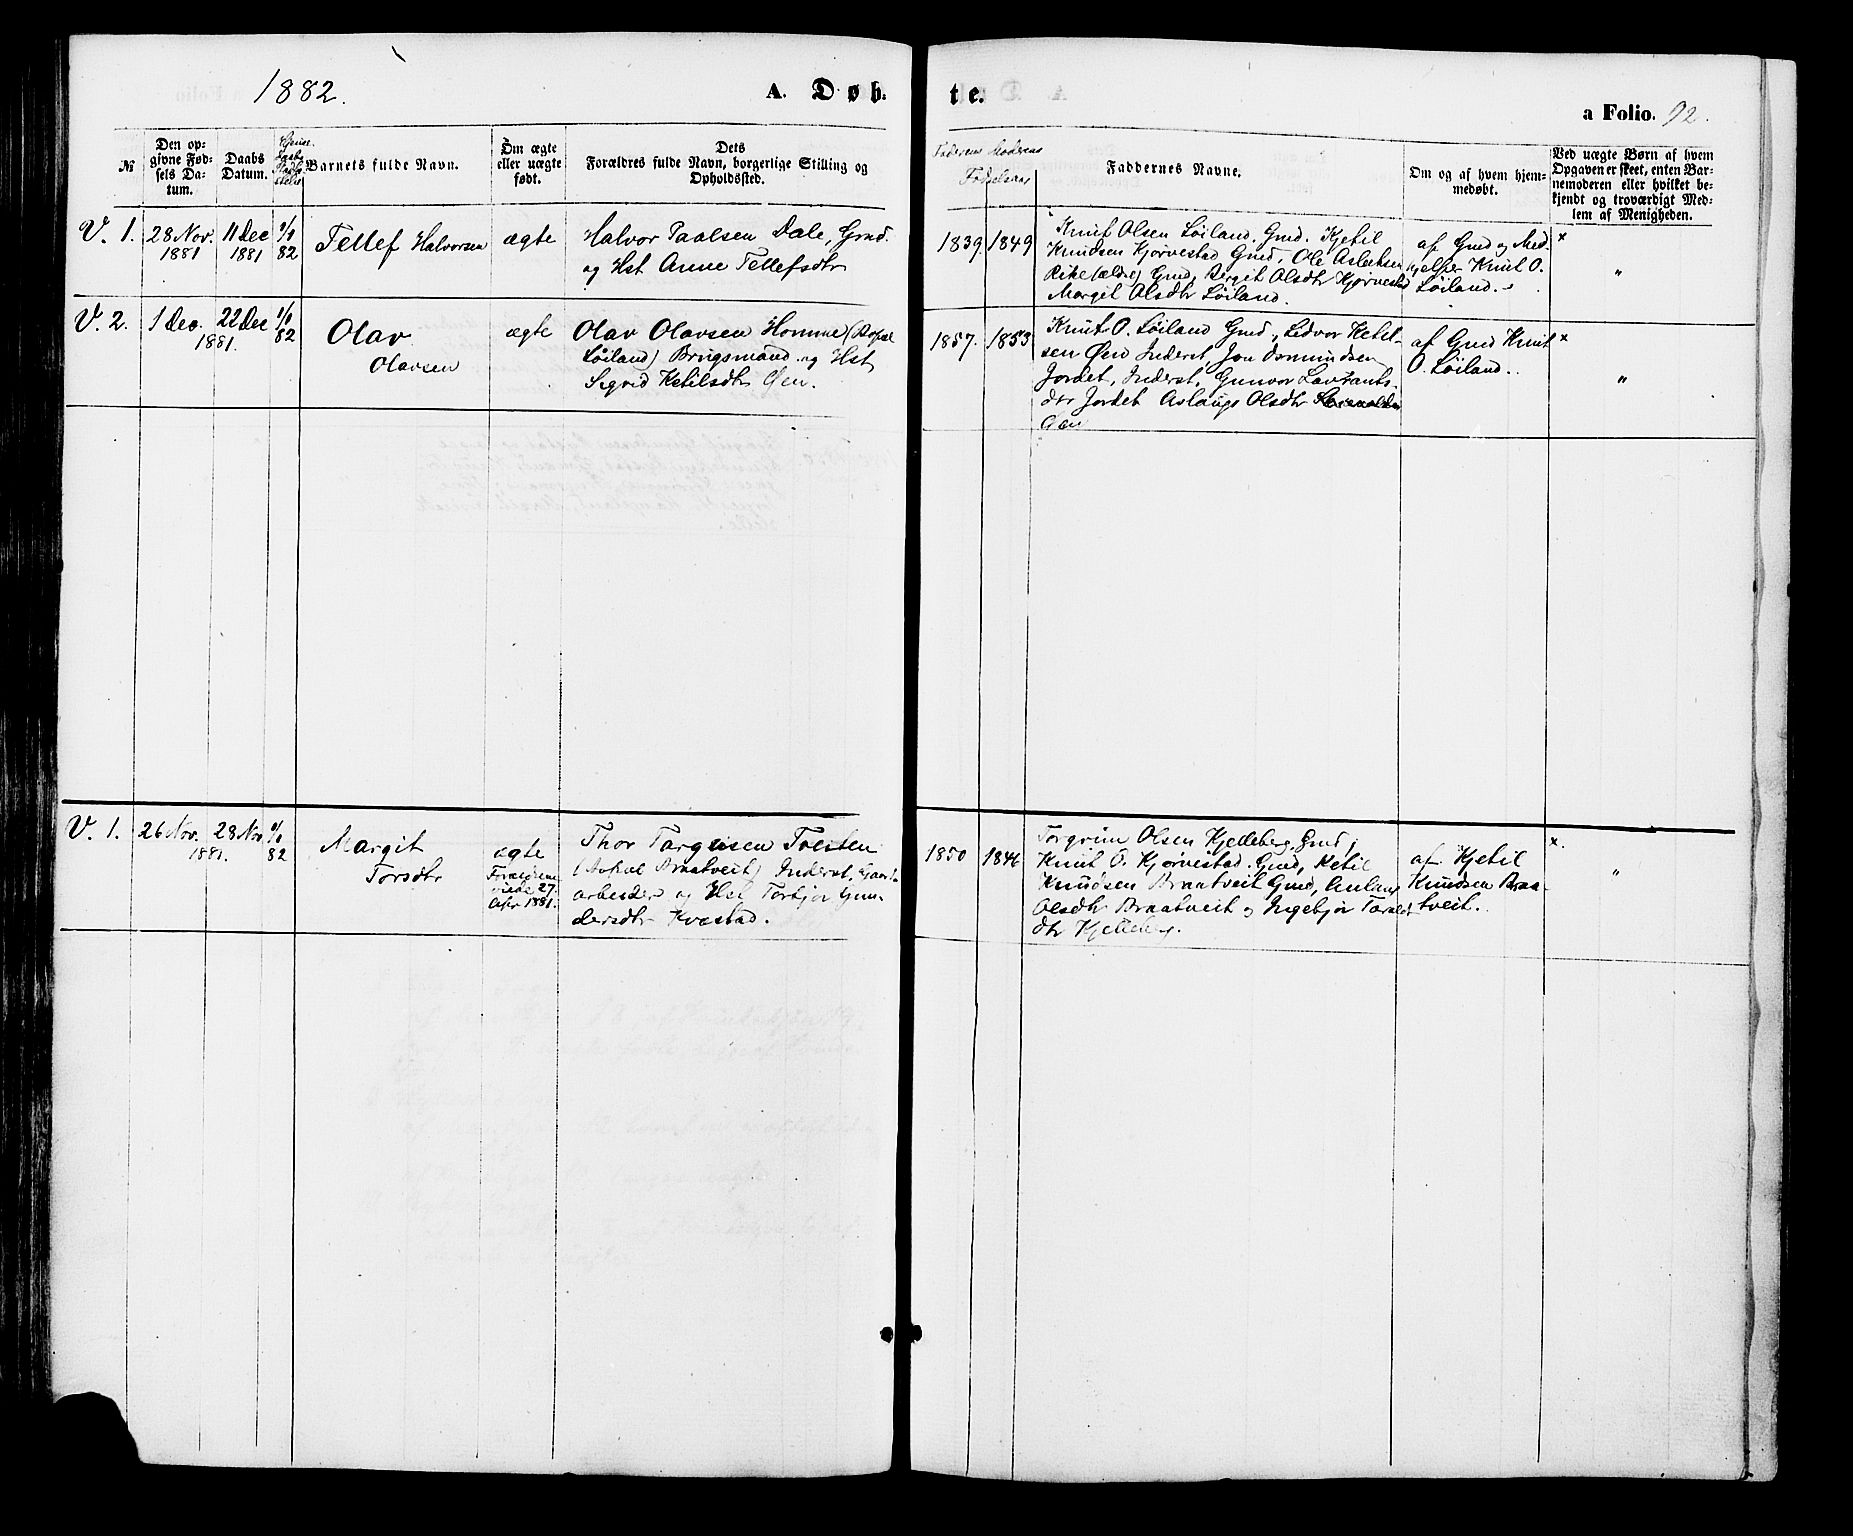 1882.
A. Døb.
te.
a Folio. 92.
№
Den op-
givne Fød-
sels Da-
tum.
Daabs
Datum.
Barnets fulde Navn.
Om ægte
eller uægte
født.
Dets
Forældres fulde Navn, borgerlige Stilling og
Opholdssted.
Faderens Moderens
Fødselsaar
Faddernes Navne.
Om og af hvem hjem-
medøbt.
Ved uægte Børn af hvem
Opgaven er skeet, enten Bar-
nemoderen eller hvilket be-
kjendt og troværdigt Med-
lem af Menigheden.
V. 1.
28 Nov.
1881
11 Dec
1881
82
Tellef Halvorsen
ægte
Halvor Paalsen Dale, Gmd.
og Hst Anne Tellefsdtr
1839. 1849
Knut Olsen Løiland. Gmd. Kjetil
Knudsen Kjørvestad Gmd, Ole Aslaksen
Rike (ældre) Gmd, Bergit Olsdtr Kjørvestad
Margit Olsdtr Løiland.
af Gmd og Med
hjelper Knut O.
Løiland.
×
"
V. 2.
1 Dec.
22 Dec
1881.
82
Olav
Olavsen
ægte
Olav Olavsen Homme (Bopæl
Løiland) Brugsmand og Hst
Sigrid Ketilsdtr Øen.
1857. 1853
Knut O. Løiland Gmd., Ledvor Ketil-
sen Øen Inderst, Jon Osmundsen
Jordet, Inderst, Gunvor Lavrants-
dtr Jordet Aslaug Olsdtr
Øen
af Gmd Knut
O. Løiland.
×
"
V. 1.
26 Nov.
28 Nov
1881.
82
Margit
Torsdtr
ægte
Forældrene
viede 27.
Apr 1881.
Thor Targusen Tveiten
(Bopæl Braatveit) Inderst, Gaards-
arbeider og Hst Torbjør Gun-
dersdtr Kvestad.
1850 1846
Torgrim Olsen Kjelleberg Gmd,
Knut O. Kjørvestad. Gmd, Ketil
Knudsen Braatveit Gmd, Aslaug
Olsdtr Braatveit og Ingebjør Taralds
dtr Kjelleberg.
af Kjetil
Knudsen Braa-
tveit.
×.
"